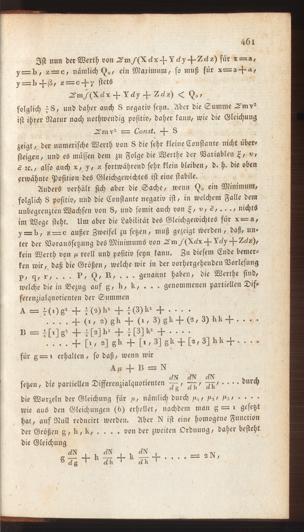 461
Ist nun der Werth von Σm∫(Xdx+Ydy+Zdz) für x=a,
y=b, z=c, nämlich Q₀, ein Maximum, so muß für x=a+α,
y=b+β, z=c+γ stets
Σm∫(Xdx+Ydy+Zdz) < Q₀,
folglich ½S, und daher auch S negativ seyn. Aber die Summe Σmv²
ist ihrer Natur nach nothwendig positiv, daher kann, wie die Gleichung
Σmv² = Const. + S
zeigt, der numerische Werth von S die sehr kleine Constante nicht über-
steigen, und es müssen dem zu Folge die Werthe der Variablen ξ, υ
etc., also auch x, y, z fortwährend sehr klein bleiben, d. h. die oben
erwähnte Position des Gleichgewichtes ist eine stabile.
Anders verhält sich aber die Sache, wenn Q₀ ein Minimum,
folglich S positiv, und die Constante negativ ist, in welchem Falle dem
unbegrenzten Wachsen von S, und somit auch von ξ, υ, nichts
im Wege steht. Um aber die Labilität des Gleichgewichtes für x=a,
y=b, z=c außer Zweifel zu setzen, muß gezeigt werden, daß, un-
ter der Voraussetzung des Minimums von Σm∫(Xdx+Ydy+Zdz),
kein Werth von μ reell und positiv seyn kann. Zu diesem Ende bemer-
ken wir, daß die Größen, welche wir in der vorhergehenden Vorlesung
p, q, r, .... P, Q, R, ... genannt haben, die Werthe sind,
welche die in Bezug auf g, h, k, ... genommenen partiellen Dif-
ferenzialquotienten der Summen
A = ½(1)g² + ½(2)h² + ½(3)k² + ....
.... + (1, 2)gh + (1, 3)gk + (2, 3)hk + ....
B = ½[1]g² + ½[2]h² + ½[3]k² + ....
.... + [1, 2]gh + [1, 3]gk + [2, 3]hk + ....
für g=1 erhalten, so daß, wenn wir
Aμ + B = N
setzen, die partiellen Differenzialquotienten dN/dg, dN/dh, dN/dk, .... durch
die Wurzeln der Gleichung für μ, nämlich durch μ₁, μ₂, μ₃, ....
wie aus den Gleichungen (6) erhellet, nachdem man g=1 gesetzt
hat, auf Null reducirt werden. Aber N ist eine homogene Function
der Größen g, h, k, .... von der zweiten Ordnung, daher besteht
die Gleichung
g dN/dg + h dN/dh + k dN/dk + .... = 2N,